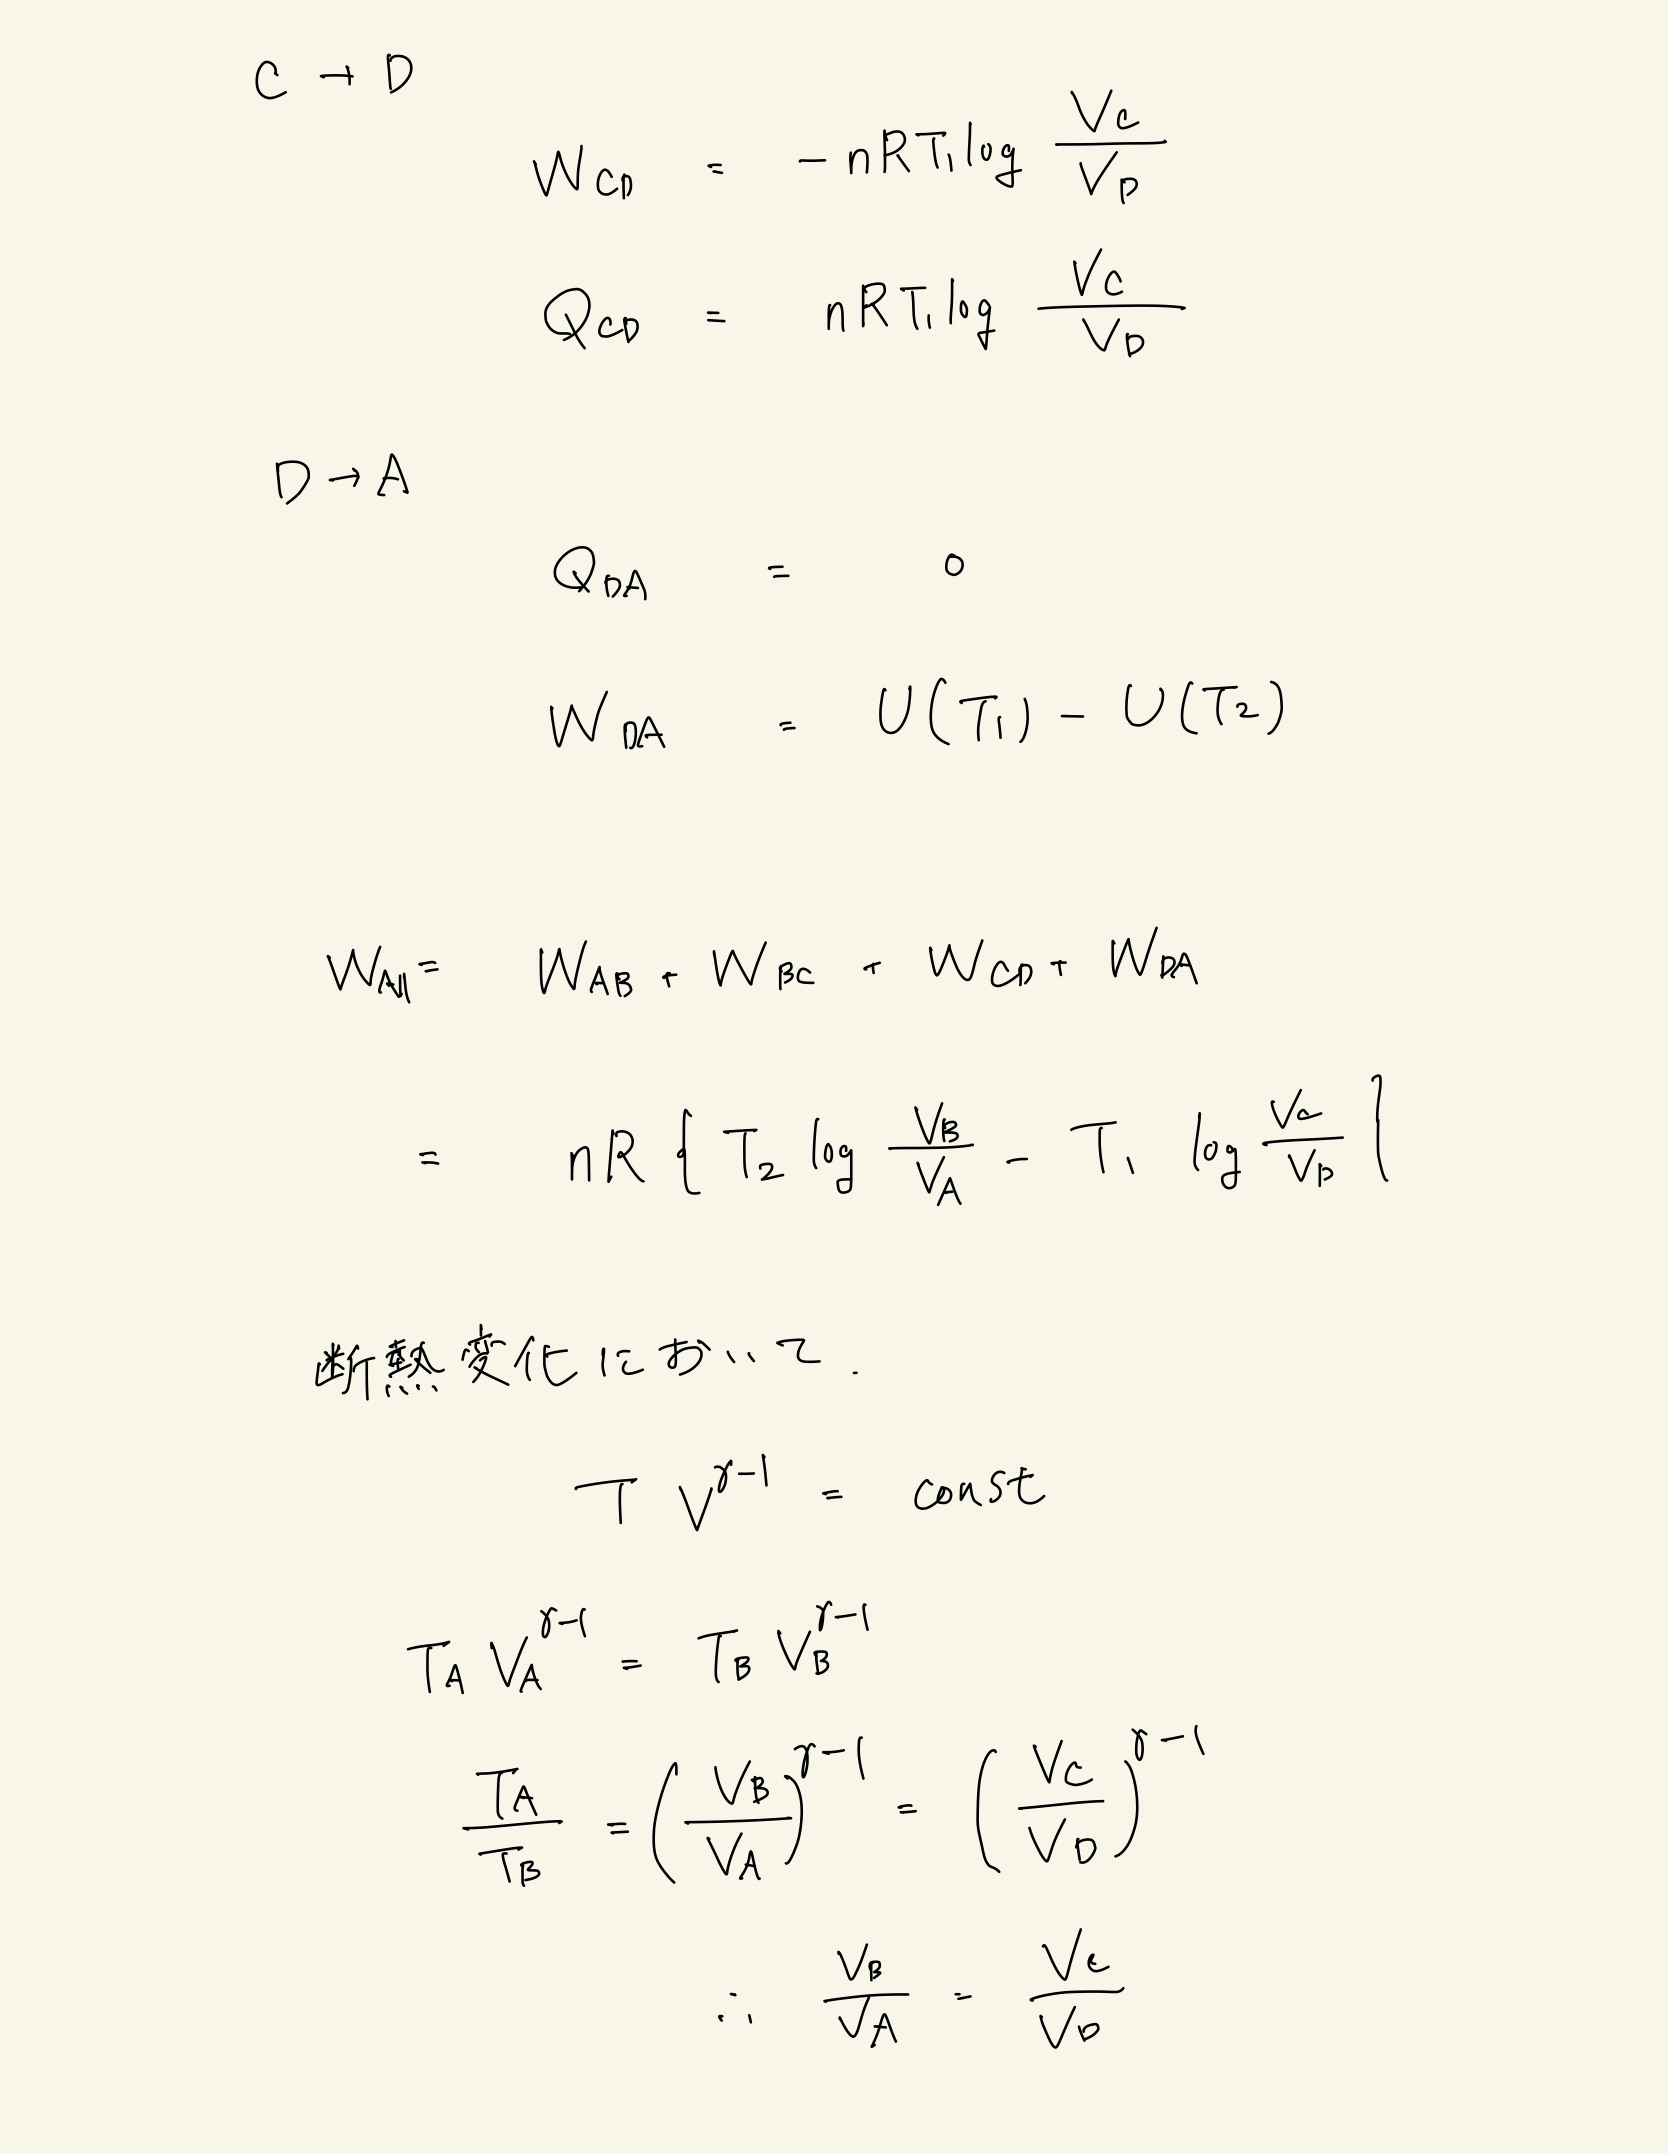 C → D
W_CD = - nRT₁ log V_C / V_D
Q_CD = nRT₁ log V_C / V_D
D → A
Q_DA = 0
W_DA = U(T₁) - U(T₂)
W_All = W_AB + W_BC + W_CD + W_DA
= nR { T₂ log V_B / V_A - T₁ log V_C / V_D }
断熱変化において.
T V^γ-1 = const
T_A V_A^γ-1 = T_B V_B^γ-1
T_A / T_B = (V_B / V_A)^γ-1 = (V_C / V_D)^γ-1
∴ V_B / V_A = V_C / V_D